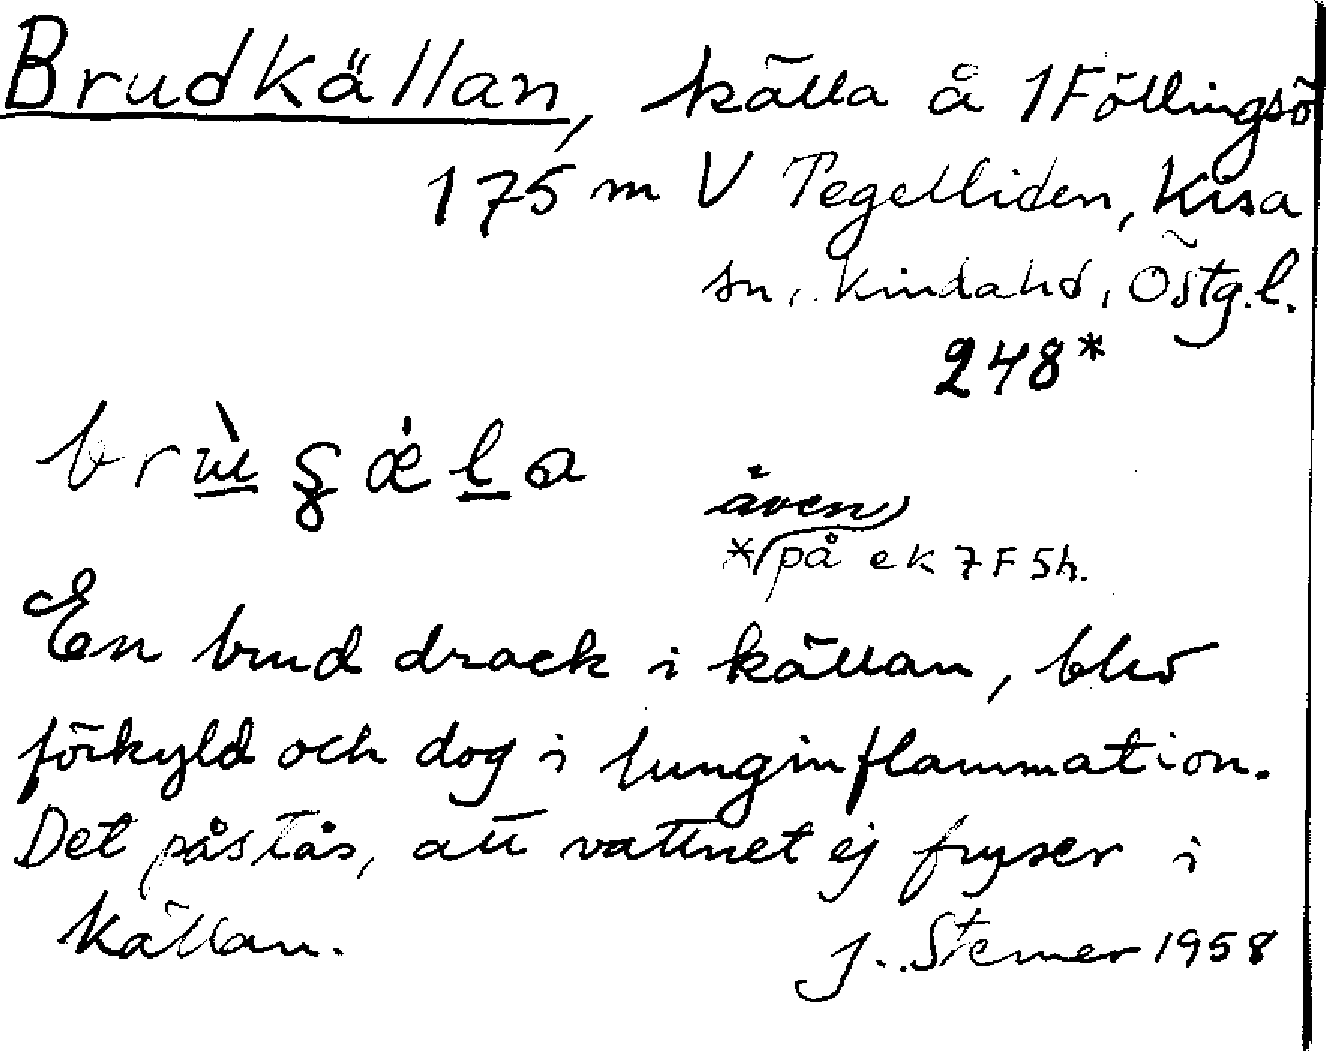 Brudkällan, källa å 1 Föllingsö
175 m V Tegelliden, Kisa
sn, Kinda hd, Östg.l.
248*
även
*på ek 7F5h.
En brud drack i källan, blev
förkyld och dog i lunginflammation.
Det påstås, att vattnet ej fryser i
källan.
J. Sterner 1958